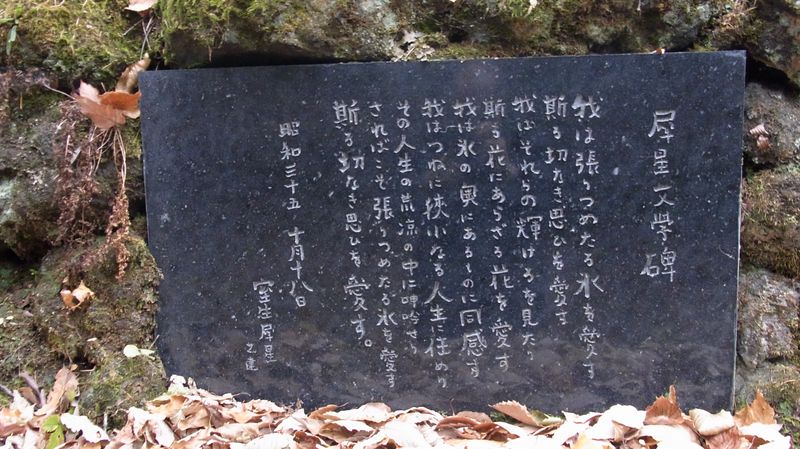 犀星文学碑
我は張りつめたる氷を愛す
斯る切なき思ひを愛す
我はそれらの輝けるを見たり
斯る花にあらざる花を愛す
我は氷の奥にあるものに同感す
我はつねに狭小なる人生に住めり
その人生の荒凉の中に呻吟せり
さればこそ張りつめたる氷を愛す
斯る切なき思ひを愛す。
昭和三十五 十月十八日
室生犀星
之建